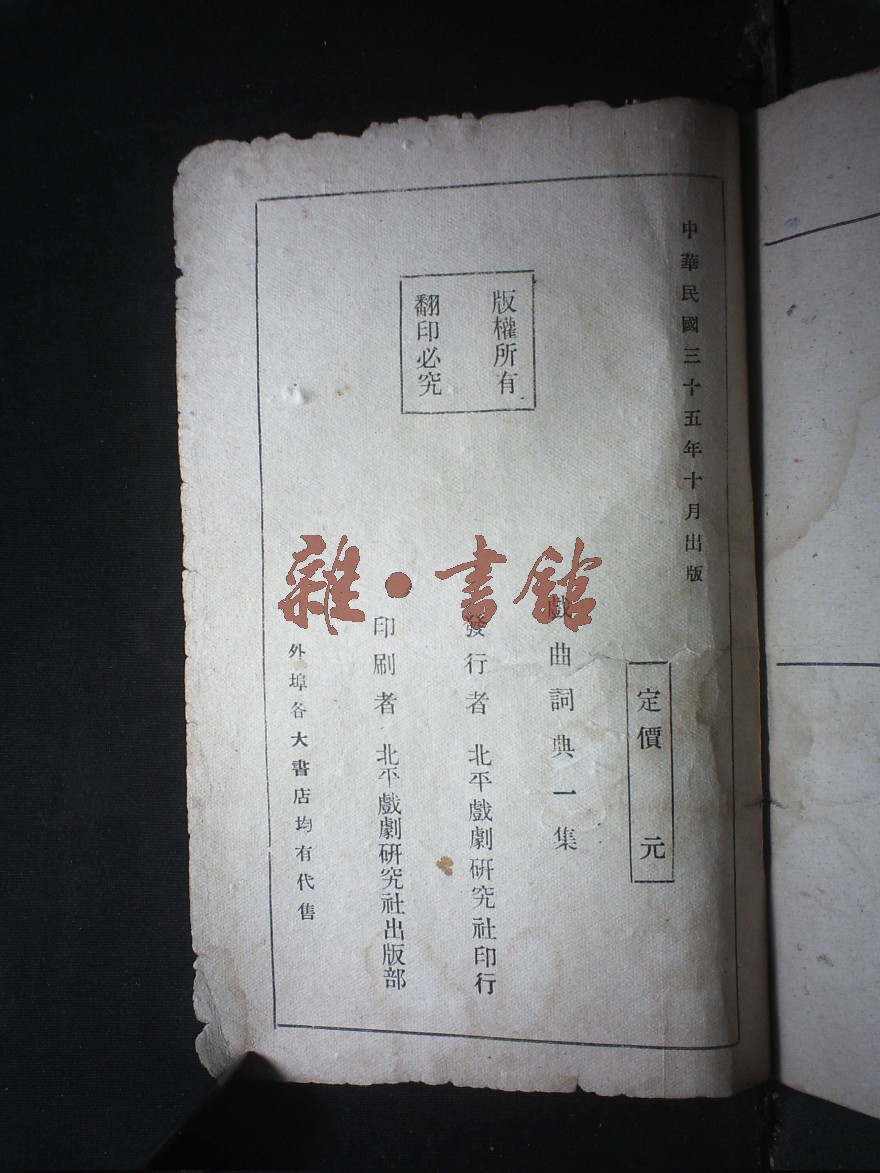 中華民國三十五年十月出版
定價 元
版權所有
翻印必究
戲曲詞典一集
發行者 北平戲劇研究社印行
印刷者 北平戲劇研究社出版部
外埠各大書店均有代售
雜·書館